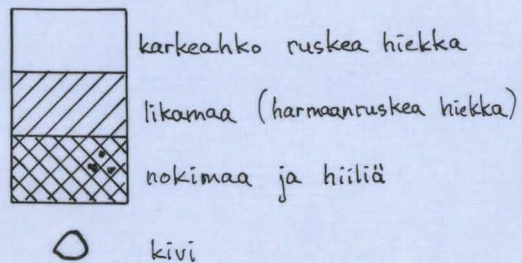 karkeahko ruskea hiekka
likamaa (harmaanruskea hiekka)
nokimaa ja hiiliä
kivi